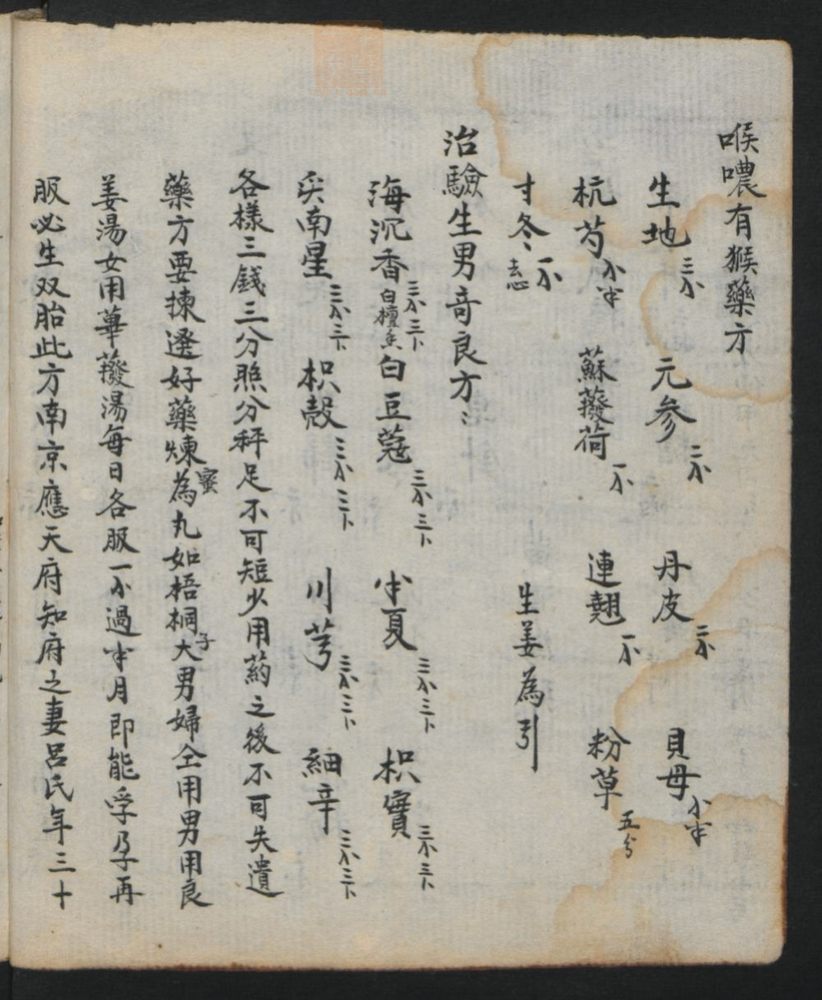 喉噥有猴藥方
生地三小 元參二小 丹皮二小 貝母小半
杭芍小半 蘇薐荷一小 連翹一小 粉草五分
寸冬一小去心 生姜為引
治驗生男奇良方
海沉香三小三卜白檀香 白豆蔻三小三卜 半夏三小三卜 枳實三小三卜
尖南星三小三卜 枳殼三小三卜 川芎三小三卜 細辛三小三卜
各樣三錢三分照分秤足不可短少用葯之後不可失遺
藥方要揀選好藥煉蜜為丸如梧桐子大男婦仝用男用良
姜湯女用蓽薐湯每日各服一小過半月即能孕乃子再
服必生双胎此方南京應天府知府之妻呂氏年三十